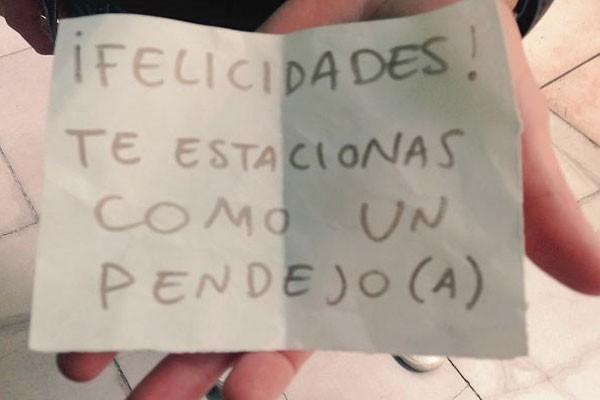 ¡FELICIDADES!
TE ESTACIONAS
COMO UN
PENDEJO(A)